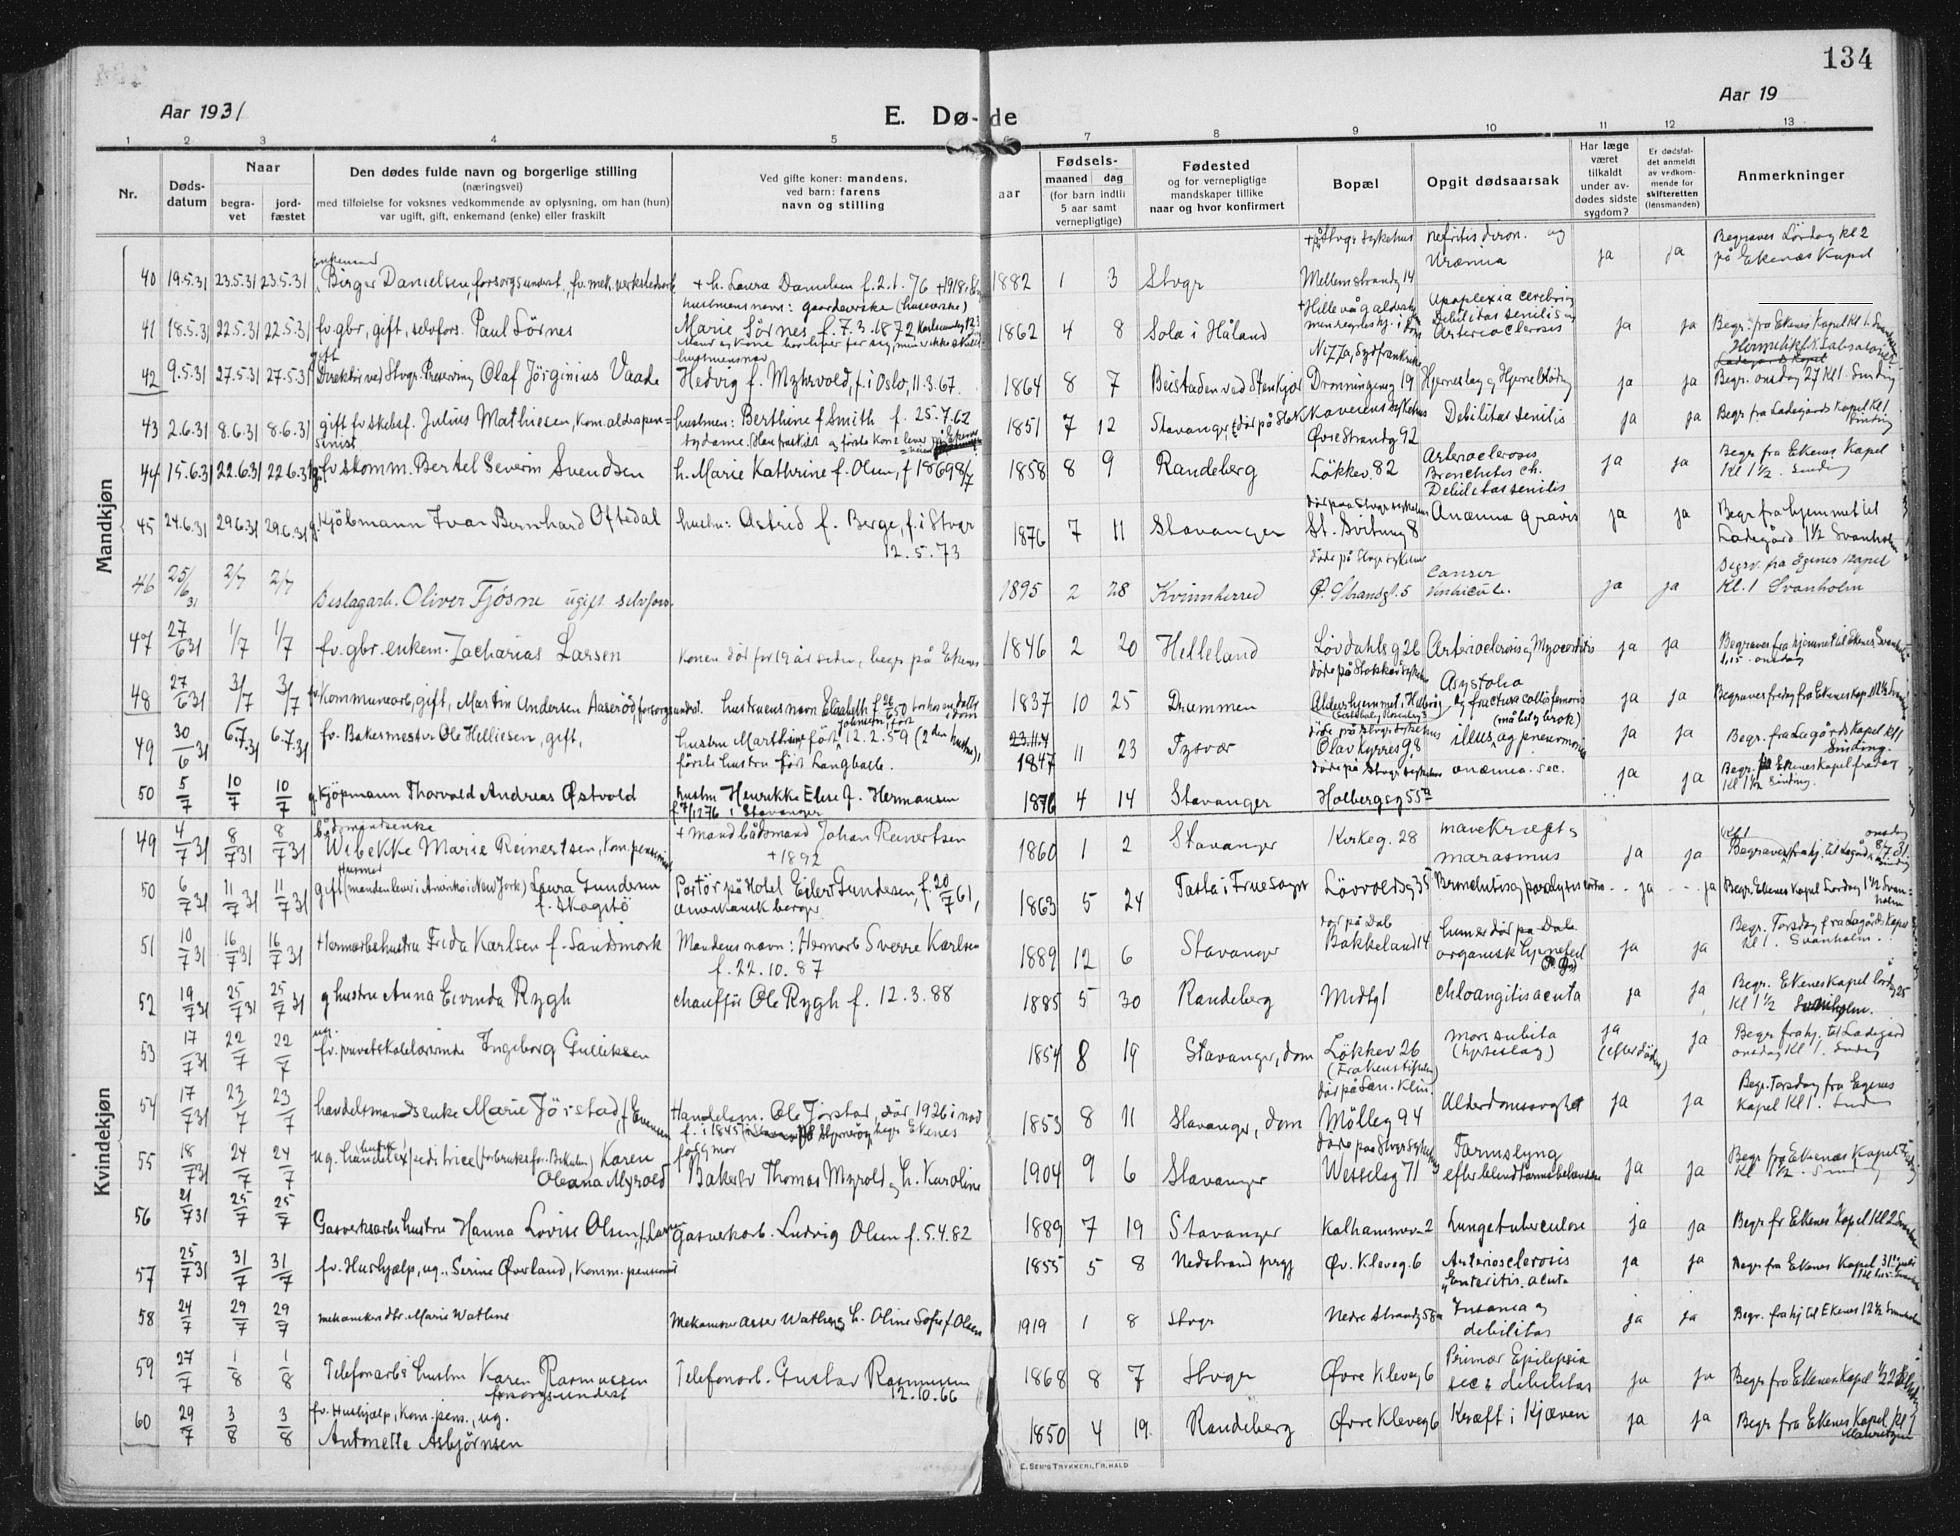 134
Aar 1931
E. Dø- de
Aar 19
1 2 3 4 5 6 7 8 9 10 11 12 13
Nr.
Døds-
datum
Naar
begra-
vet
jord-
fæstet
Den dødes fulde navn og borgerlige stilling
(næringsvei)
med tilføielse for voksnes vedkommende av oplysning, om han (hun)
var ugift, gift, enkemand (enke) eller fraskilt
Ved gifte koner: mandens,
ved barn: farens
navn og stilling
aar
Fødsels-
maaned dag
(for barn indtil
5 aar samt
vernepligtige)
Fødested
og for vernepligtige
mandskaper tillike
naar og hvor konfirmert
Bopæl
Opgit dødsaarsak
Har læge
været
tilkaldt
under av-
dødes sidste
sygdom?
Er dødsfal-
det anmeldt
av vedkom-
mende for
skifteretten
(lensmanden)
Anmerkninger
Mandkjøn
enkemand + på Stvgr sykehus Nefritis chron. og Begraves Lördag kl 2
40 19.5.31 23.5.31 23.5.31 Birger Danielsen, forsorgsunderst., fv. mek. verkstedarb + h. Laura Danielsen f. 2.1.76 +1918 1882 1 3 Stvgr Mellemstrandg 14 Urämia ja ja på Ekenæs Kapel
hustruens navn: gaardeierske (huseierske)
41 18.5.31 22.5.31 22.5.31 fv. gbr, gift, selvfors. Paul Sörnes Marie Sörnes, f. 7.3.1872 1862 4 8 Sola i Håland Apoplexia cerebri Debilitas senilis og Arteriosclerosis ja ja Begr. fra Ekenes Kapel kl 1.
gift Nizza, Sydfrankrike
42 9.5.31 27.5.31 27.5.31 Direktör ved Stvgr. Preserving Olaf Jörginius Vaade Hedvig f. Myhrvold, f. i Oslo, 11.3.67. 1864 8 7 Beistaden ved Stenkjær Dronningensg 19 Hjerneslag og Hjerneblödning ja ja Begr. onsdag 27 Kl 1. Sinding
43 2.6.31 8.6.31 8.6.31 gift fv skibsf. Julius Mathiesen, kom. alderspen= sionist hustruen: Berthine f Smith f. 25.7.62 1851 7 12 Stavanger, død på Stokkaveiens sykehus Debilitas senilis ja ja Begr fra Ladegårds Kapel Kl 1 Sinding
Övre Strandg 92
44 15.6.31 22.6.31 22.6.31 g. fv skomm. Bertel Severin Svendsen h. Marie Kathrine f. Olsen, f 1869 8/7 1858 8 9 Randeberg Lökkev. 82 Arterioclerosis Bronchitis ch. Debilitas senilis ja ja Begr fra Ekenes Kapel Kl 1 ½. Sinding
död paa Stvgr sykehus
45 24.6.31 29.6.31 29.6.31 g Kjöbmann Ivar Bernhard Oftedal hustru: Astrid f. Berge, f. i Stvgr 12.5.73 1876 7 11 Stavanger St. Svitunsg 8 Anæmia gravis ja ja Begr fra hjemmet til Ladegård 1½ Svanholm
döde på Stvgr sykehus
46 25/6 31 2/7 2/7 Beslagarb. Oliver Fjösne ugift selvfors. 1895 2 28 Kvinnherred Ø. Strandgt. 5 Cancer ventriculi. ja ja Begrv. fra Egenes Kapel Kl. 1 Svanholm
47 27/6 31 1/7 1/7 fv. gbr. enkem. Zacharias Larsen Konen död for 19 år siden, begr på Ekenes 1846 2 20 Helleland Lövdahlsg 26 Arterioclerosis og Myocarditis ja ja Begraves fra hjemmet til Ekenes, Svanholm 1.15. onsdag
döde på Stokkav sykehus
48 27/6 31 3/7 3/7 fv Kommunearb, gift, Martin Andersen Aaseröd, forsorgsunderst. hustruens navn Elisabeth f. 1837 10 25 Drammen Aldershjemmet, Hillevåg Asystolia og fractura colli femoris (målet og brok) ja ja Begraves fredag fra Ekenes Kap. Kl 1½
49 30/6 31 6.7.31 6.7.31 fv. Bakermester Ole Helliesen, gift, hustru Marthine född Johnsen, född 12.2.59 (2den hustru), förste hustru född Langballe. 1847 11 23 Tysvær döde på Stvgr. sykehus Olav Kyrresg 8 illeus, og pneumonia ja ja Begr. fra Lagårds Kapel Kl 1 Sinding.
50 5/7 10/7 10/7 g Kjöpmann Thorvald Andreas Østvold hustru Henrikke Elise f. Hermansen i Stavanger 1876 4 14 Stavanger döde på Stvgr sykehus Holbergsg 55a anæmia. sec. ja ja Begr. på Ekenes Kapel fredag Kl 1½ Sinding.
Kvindekjøn
49 4/7 31 8/7 31 8/7 31 bådsmandsenke Wibekke Marie Reinertsen, kom. pensionist + mand bådsmand Johan Reinertsen +1892 1860 1 2 Stavanger Kirkeg. 28 mavekræft, marasmus ja ja Begraves fra hj. til Lagård onsdag 8/7 31. Kl 1 Sinding
50 6/7 31 11/7 31 11/7 31 Husmor gift (manden lever i Amerika i New York) Laura Gundersen f. Skogstö Portör på Hotel Eilert Gundersen, f. 20/7 61, amerikansk borger 1863 5 24 Tasta i Fruesogn Lövvoldsg 35 Bronchitis og paralysis cordis ja ja Begr. Ekenes Kapel Lördag 1½ Svan= holm
51 10/7 31 16/7 31 16/7 31 Hermarbshustru Frida Karlsen f. Sandsmork Mandens navn: Hermarb Sverre Karlsen f. 22.10.87 1889 12 6 Stavanger död på Dale Bakkeland 14 hun er död på Dale. organisk hjernefeil ja ja Begr. Torsdag fra Lagårds Kapel Kl 1. Svanholm.
52 19/7 31 25/7 31 25/7 31 g hustru Anna Eivinda Rygh chauffør Ole Rygh f. 12.3.88 1885 5 30 Randeberg Midtg 1 Choloangitis acuta ja ja Begr. Ekenes Kapel lördag 25 Kl 1½ Svanholm.
53 17/7 31 22/7 22/7 ug. fv. privatskolelærerinde Ingeborg Gulliksen 1854 8 19 Stavanger, dom Lökkev 26 (Enkenstiftelsen) mors subita (hjerteslag) ja (efter döden) ja Begr fra hj. til Ladegård onsdag Kl 1. Sinding
54 17/7 31 23/7 23/7 handelsmandsenke Marie Jörstad, f. Evensen Handelsm. Ole Jörstad, död 1926 i mai f. i 1845 begr Ekenes 1853 8 11 Stavanger, dom död på San. Klin. Mölleg 94 Alderdomssvaghet ja ja Begr. Torsdag fra Egenes Kapel Kl 1. Sinding
55 18/7 31 24/7 24/7 ug. handelexpeditrice (forbruksfor. Bikuben) Karen Oleana Myrvold far og mor Bakersv Thomas Myrold og h. Karoline 1904 9 6 Stavanger döde paa Stvgr Sykehus Wesselsg 71 Tarmslyng efter blindtarmsbetændelse ja ja Begr fra Ekenæs Kapel Fredag Kl 1½. Sinding
56 21/7 31 25/7 25/7 Gasverksarbs hustru Hanna Lovise Olsen, f. Gasverkarb. Ludvig Olsen f. 5.4.82 1889 7 19 Stavanger Kalhammerv 2 Lungetuberculose ja ja Begr. fr Ekenes Kapel Kl 2
57 25/7 31 31/7 31/7 fv. Hushjælp, ug., Serine Øverland, Komm. pensionist 1855 5 8 Nedstrand prgj Øv. Kleveg. 6 Arteriosclerosis Enteritis. acuta ja ja Begr fra Ekenes Kapel 31te juli
58 24/7 29/7 29/7 mekanikers dtr. Marie Wathne Mekaniker Asser Wathne og h. Oline Sofie f Olsen 1919 1 8 Stvgr Nedre Strandg 58a Insania og debilitas ja ja Begr. fra hj til Ekenes 12½
59 27/7 1/8 1/8 Telefonarbs hustru Karen Rasmussen forsorgsunderst Telefonarb. Gustav Rasmussen 12.10.66 1868 8 7 Stvgr Øvre Kleveg 6 Primær Epilepsia sec: debilitas ja ja Begr fra Ekenes Kapel
60 29/7 3/8 3/8 fv. Hushjælp, Kom. pens., ug. Antonette Asbjørnsen 1850 4 19 Randeberg Øvre Kleveg 6 Kræft i Kjæven ja ja Begr fra Ekenes Kapel Kl 1
E. SEM'S TRYKKERI, FR. HALD